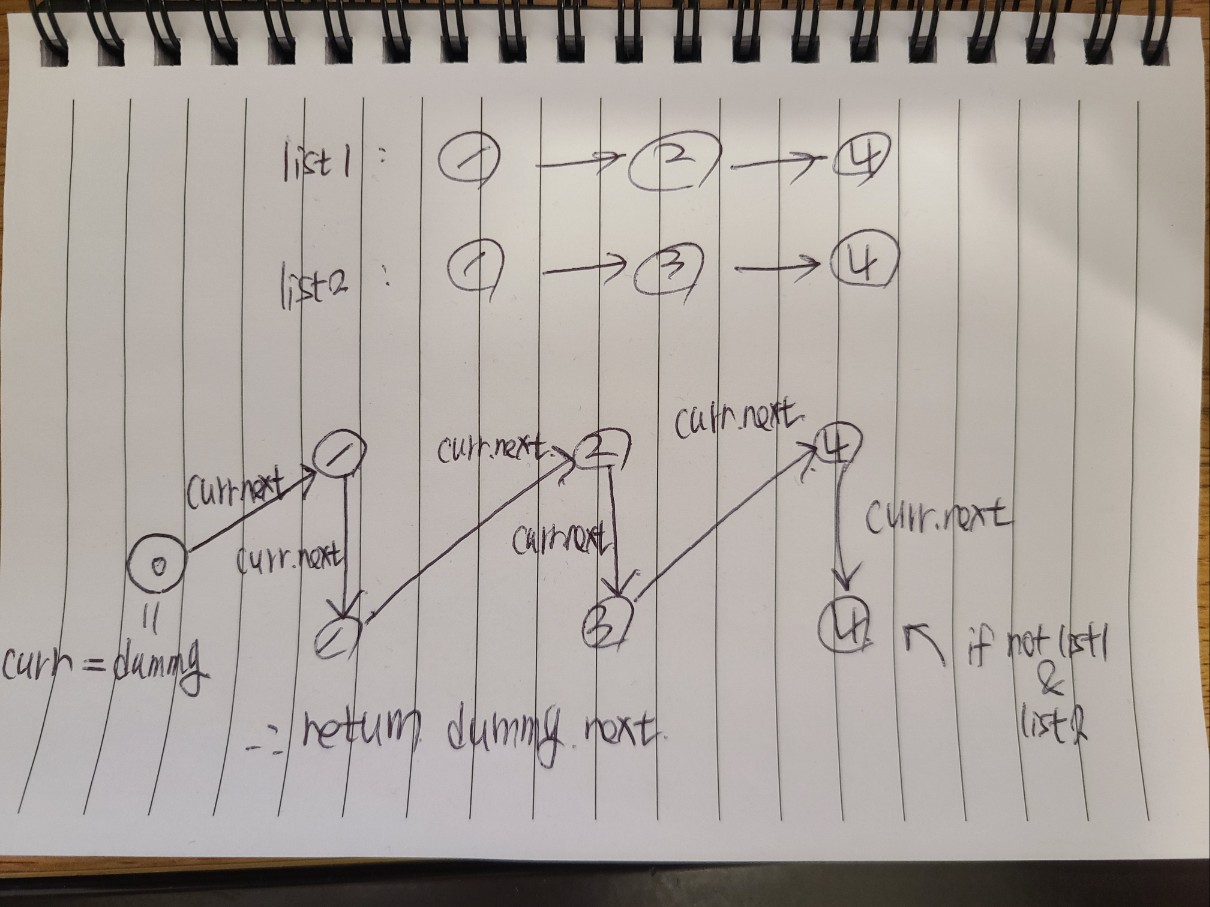 list1 : 1 → 2 → 4
list2 : 1 → 3 → 4
curr.next
curr.next 1 curr.next 2 4
curr.next curr.next curr.next
0
1 3 4 if not list1
&
list2
curr = dummy
∴ return dummy.next